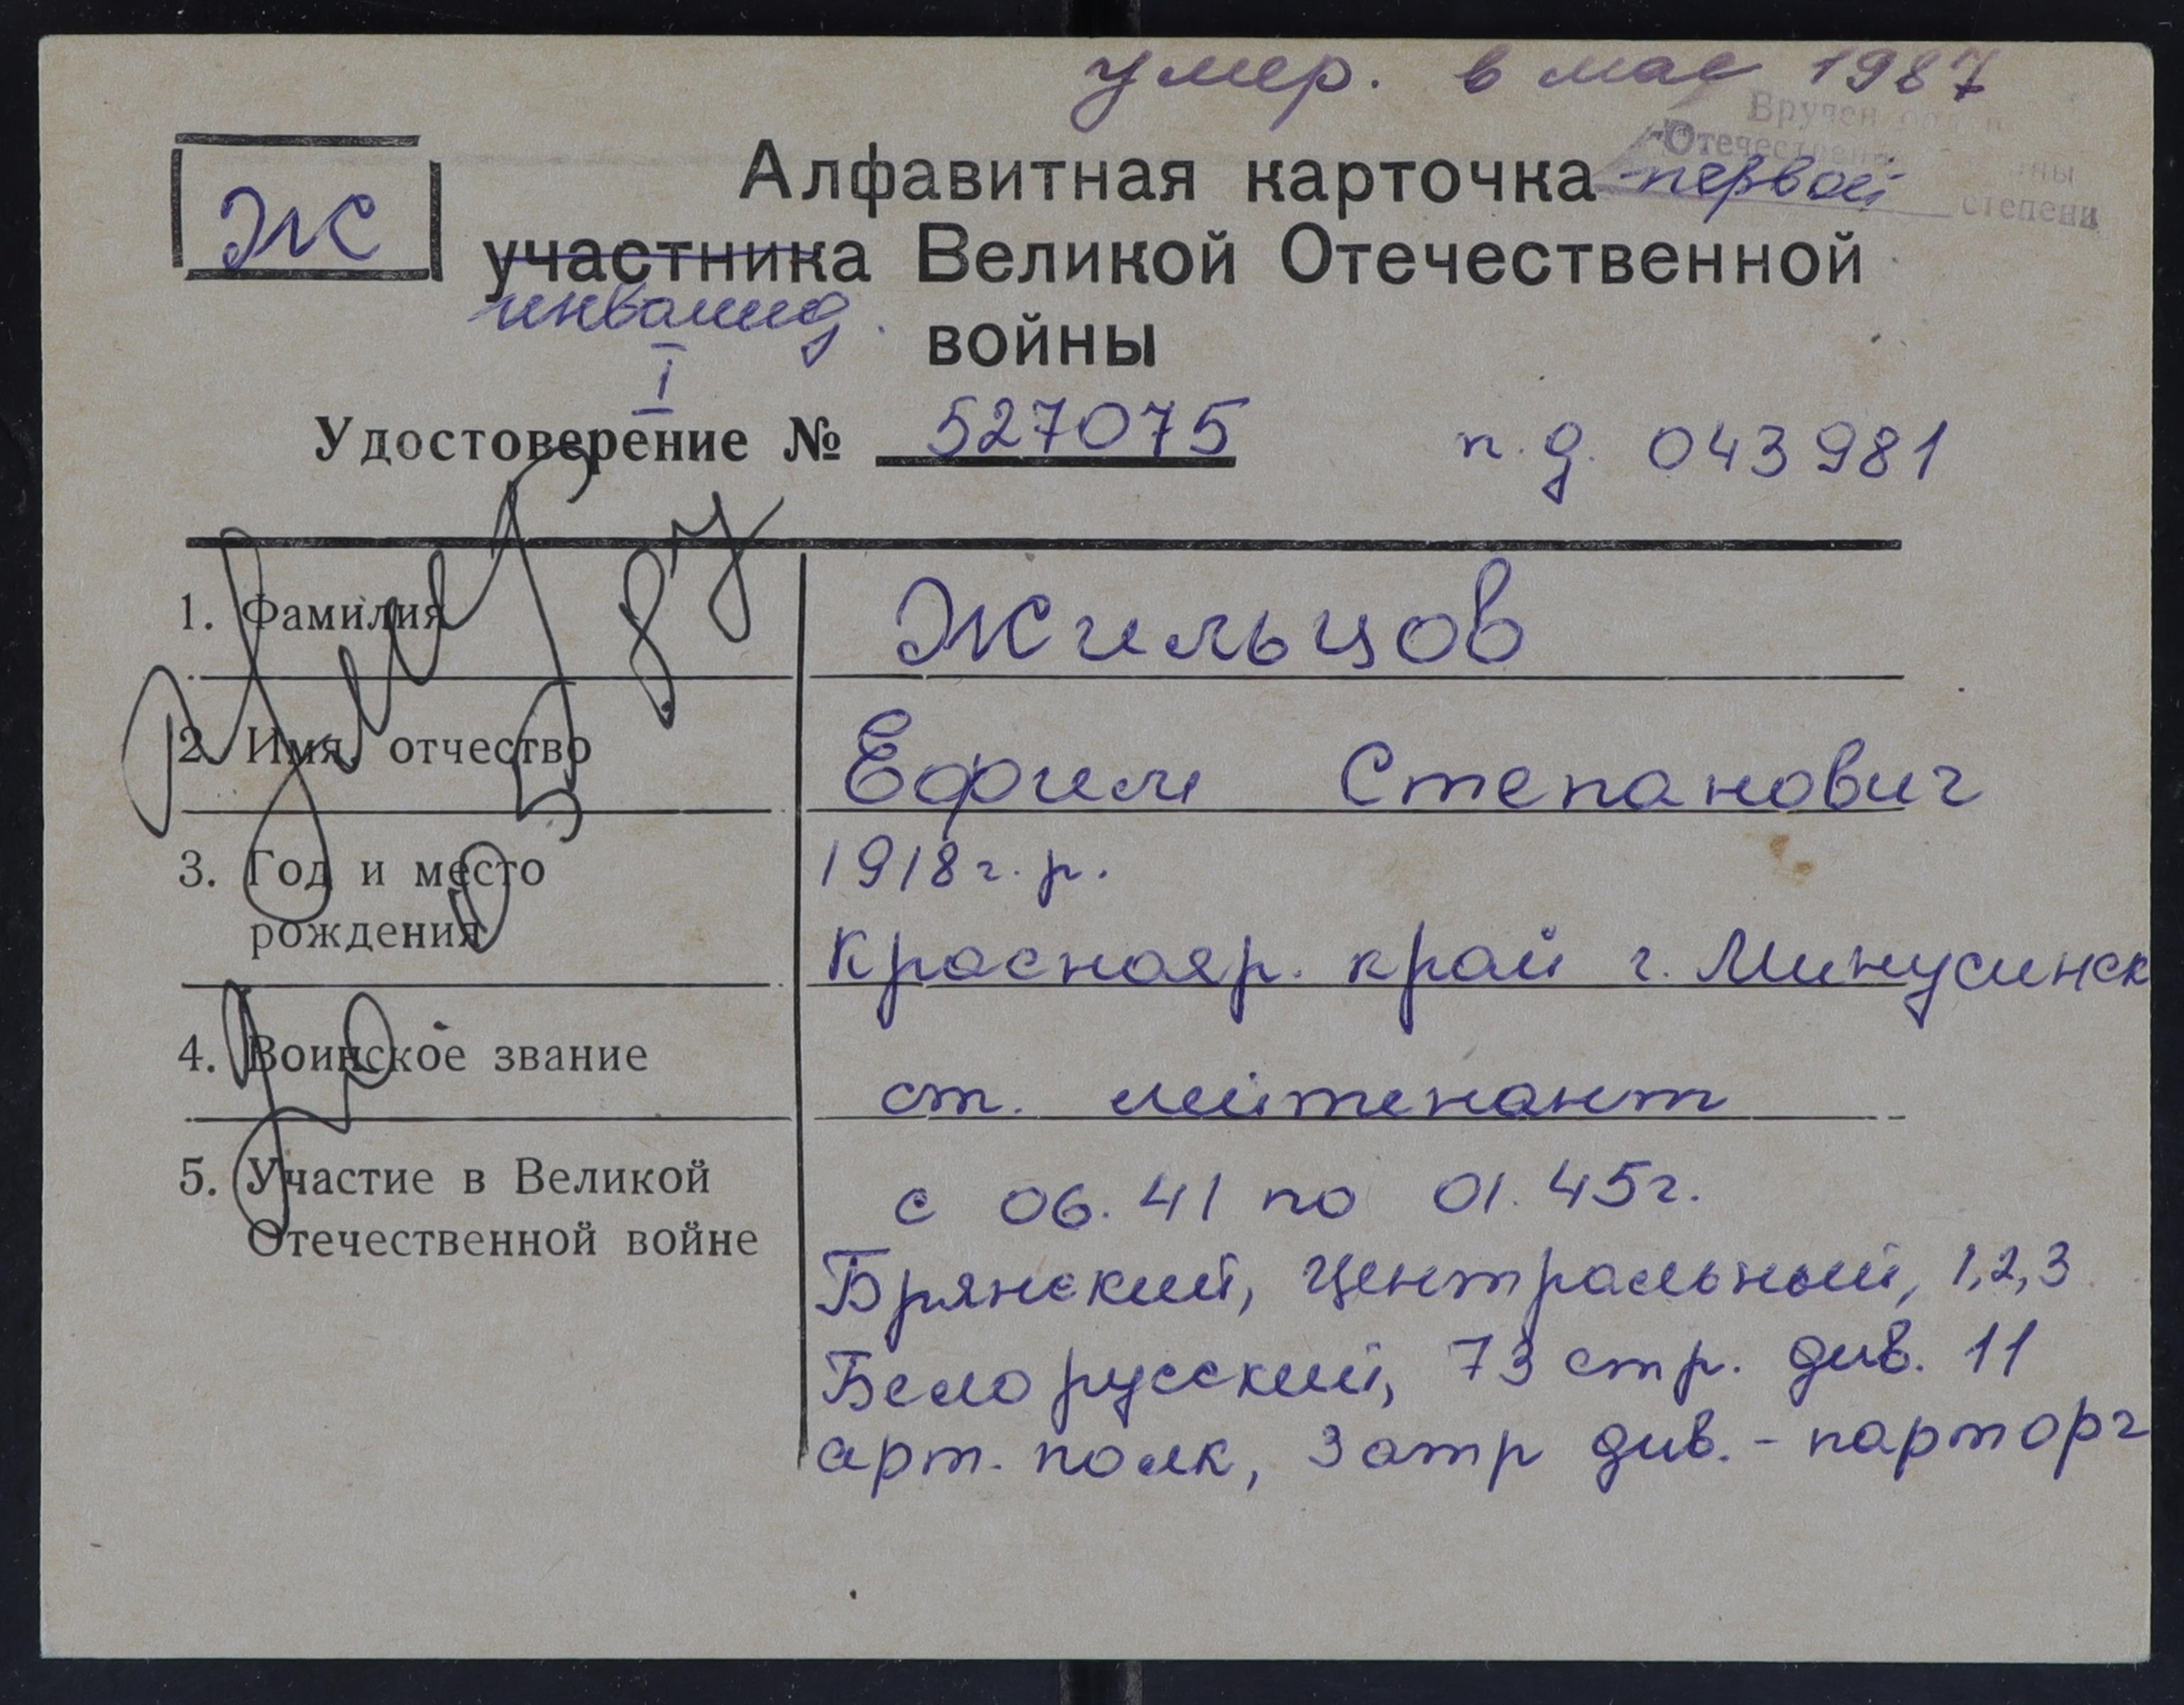 умер. в мае 1987
Вручен орден
"Отечественной войны
первой степени
Ж
Алфавитная карточка
участника Великой Отечественной
инвалид.
войны
I
Удостоверение № 527075 п.д. 043981
87
1. Фамилия Жильцов
2. Имя, отчество Ефим Степанович
3. Год и место 1918 г. р.
рождения Краснояр. край г. Минусинск
4. Воинское звание ст. лейтенант
5. Участие в Великой с 06.41 по 01.45г.
Отечественной войне
Брянский, Центральный, 1,2,3
Белорусский, 73 стр. див. 11
арт. полк, 3 отр див. - парторг